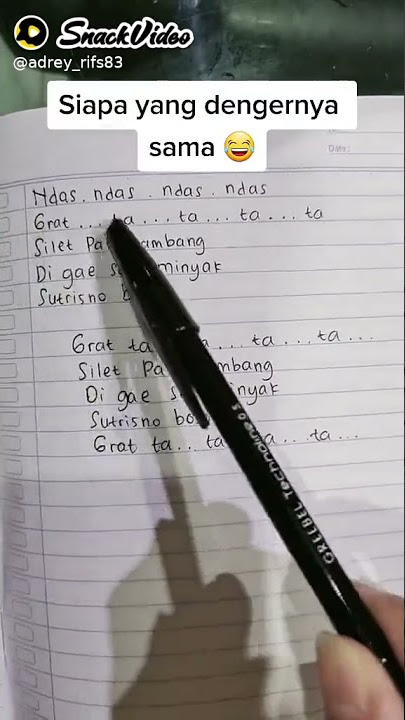 SnackVideo
@adrey_rifs83
Siapa yang dengernya
sama 😂
Ndas . ndas . ndas . ndas
Grat ... ta ... ta ... ta ... ta
Silet
Di gae minyak
Sutrisno
Grat ta ... ta ... ta ...
Silet
Di gae
Sutrisno
Grat ta .. ta .. ta ...
GREEBEL Technoline